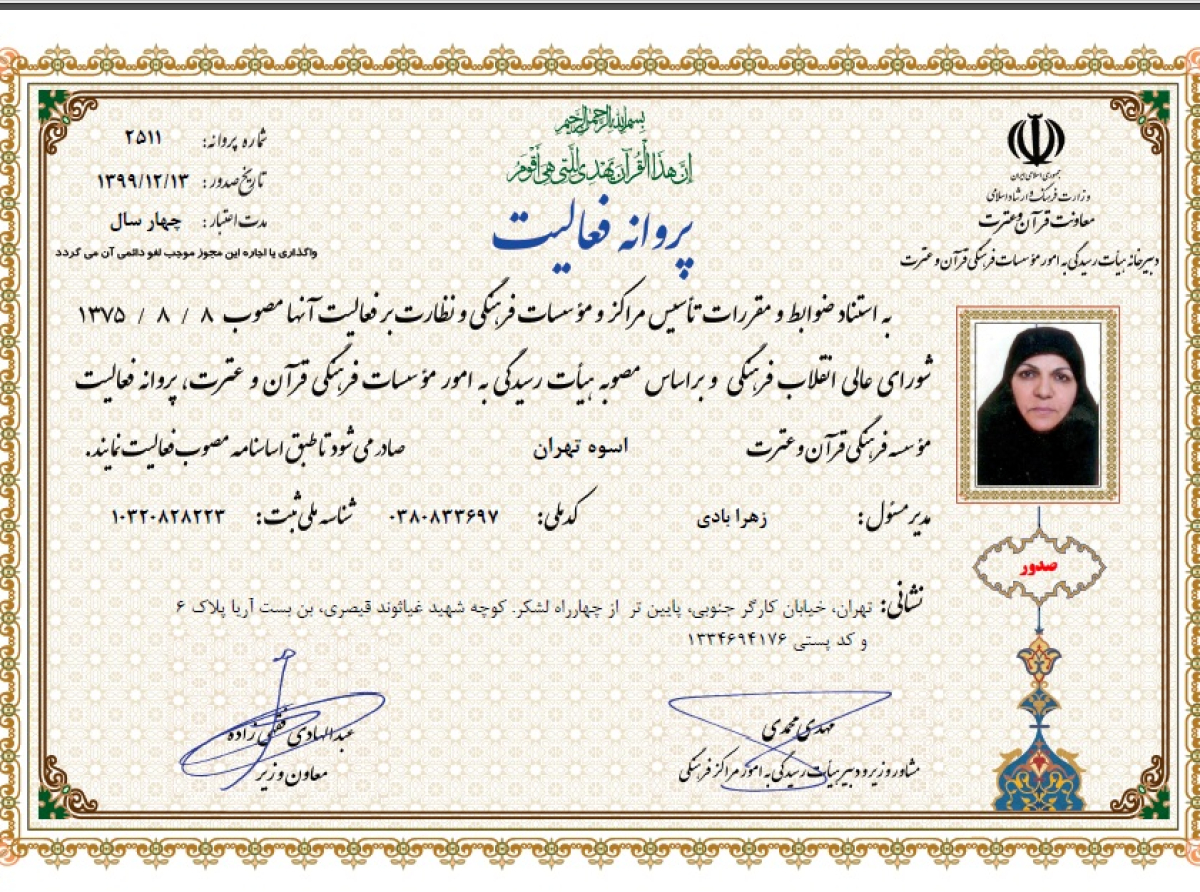 بسم الله الرحمن الرحیم
إن هذا القرآن یهدی للتی هی أقوم
پروانه فعالیت
جمهوری اسلامی ایران
وزارت فرهنگ و ارشاد اسلامی
معاونت قرآن و عترت
دبیرخانه هیأت رسیدگی به امور مؤسسات فرهنگی قرآن و عترت
شماره پروانه: ۲۵۱۱
تاریخ صدور: ۱۳۹۹/۱۲/۱۳
مدت اعتبار: چهار سال
واگذاری یا اجاره این مجوز موجب لغو دائمی آن می گردد
به استناد ضوابط و مقررات تأسیس مراکز و مؤسسات فرهنگی و نظارت بر فعالیت آنها مصوب ۸ / ۸ / ۱۳۷۵
شورای عالی انقلاب فرهنگی و براساس مصوبه هیأت رسیدگی به امور مؤسسات فرهنگی قرآن و عترت، پروانه فعالیت
مؤسسه فرهنگی قرآن و عترت اسوه تهران صادر می شود تا طبق اساسنامه مصوب فعالیت نمایند.
مدیر مسئول: زهرا بادی کد ملی: ۰۳۸۰۸۳۳۶۹۷ شناسه ملی ثبت: ۱۰۳۲۰۸۲۸۲۲۳
صدور
نشانی: تهران، خیابان کارگر جنوبی، پایین تر از چهارراه لشکر. کوچه شهید غیاثوند قیصری، بن بست آریا پلاک ۶
و کد پستی ۱۳۳۴۶۹۴۱۷۶
مهدی محمدی
مشاور وزیر و دبیر هیأت رسیدگی به امور مراکز فرهنگی
عبدالهادی فقهی زاده
معاون وزیر